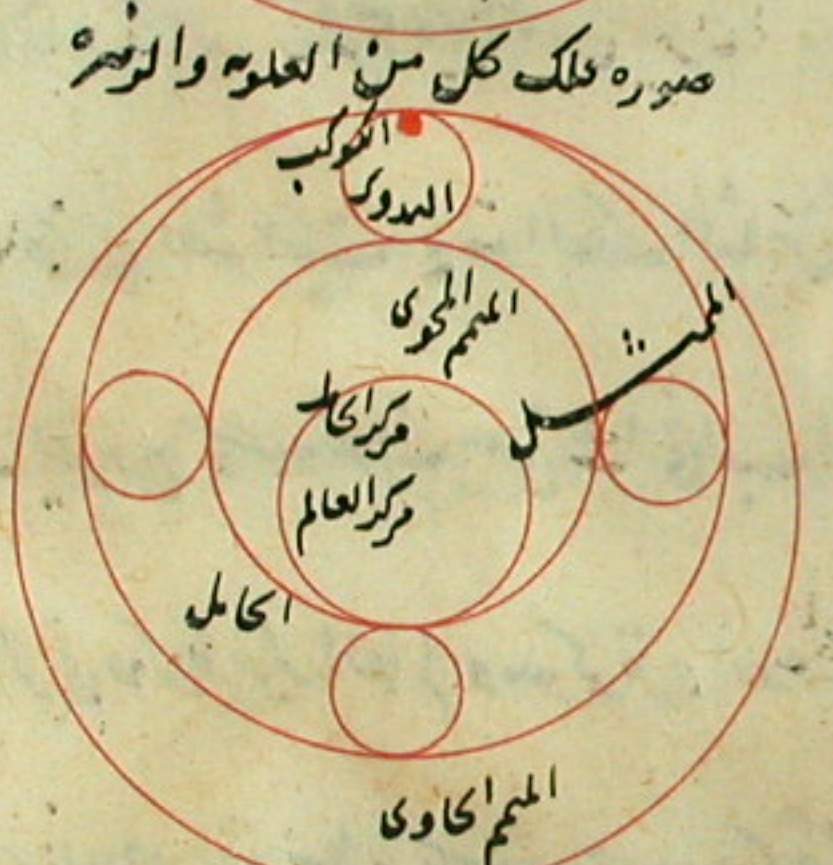 صوره فلك كل من العلويه والزهره
الكوكب
التدوير
المتمم المحوى
الممثل
مركز الحامل
مركز العالم
الحامل
المتمم الحاوى